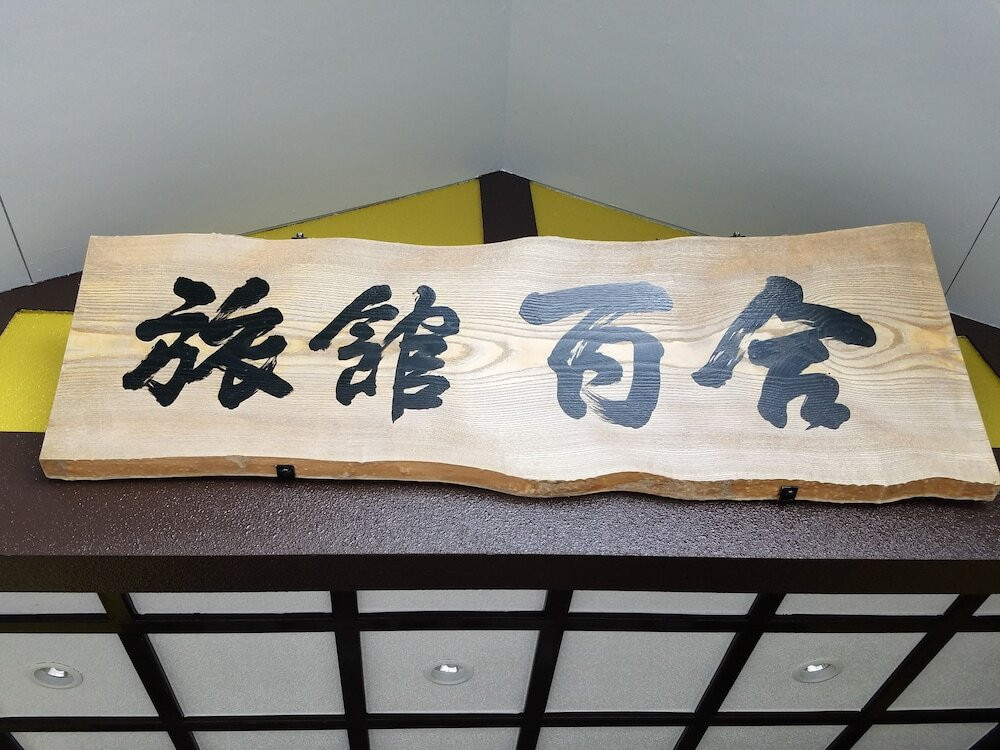 旅館百合